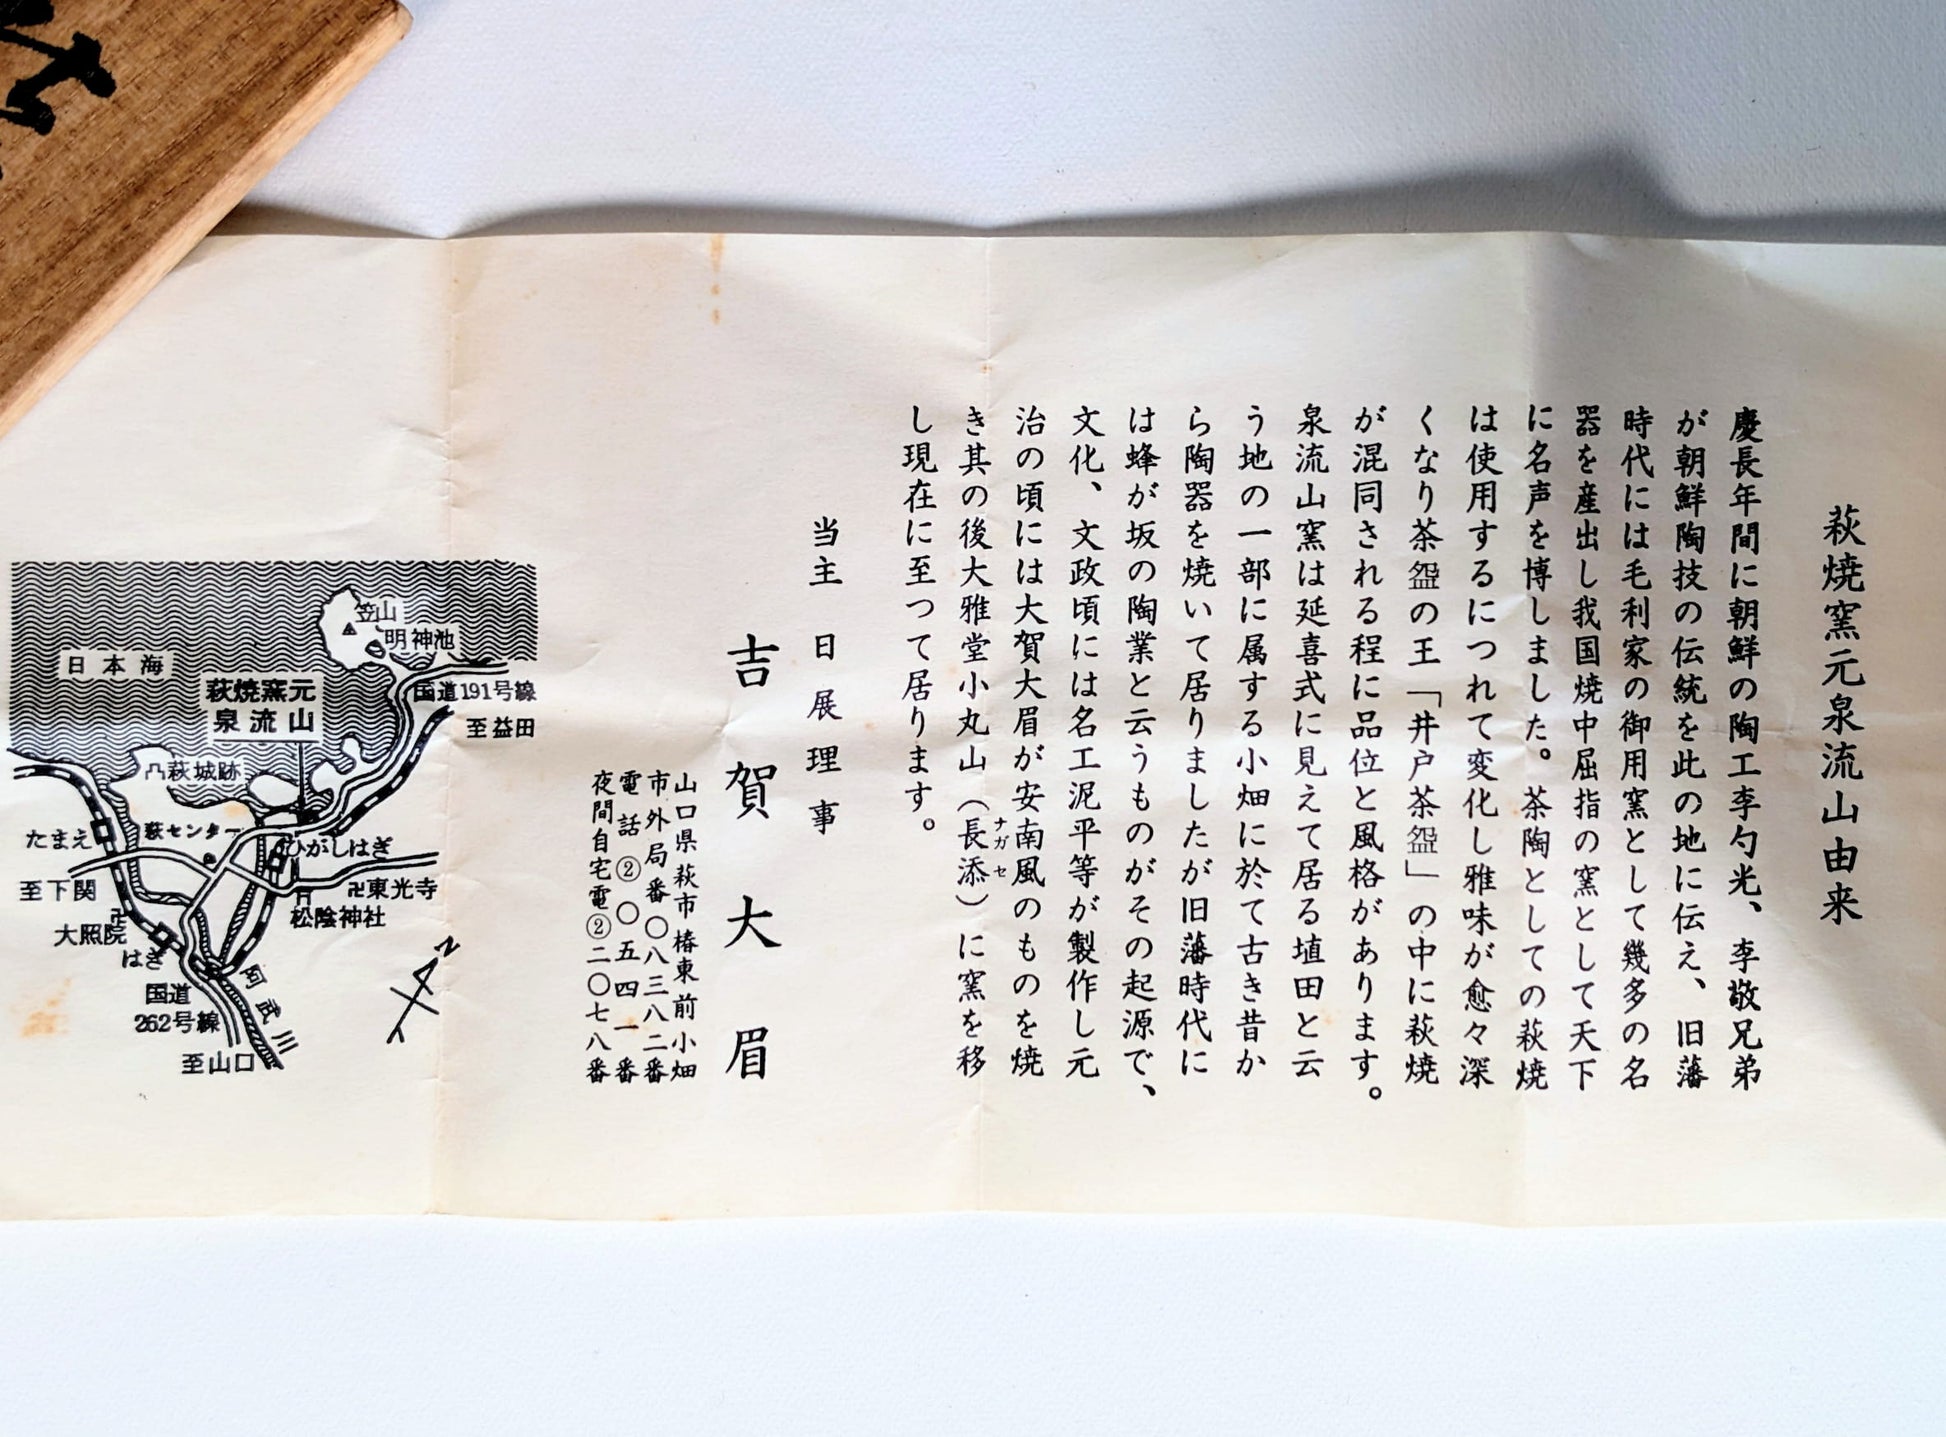 萩焼窯元泉流山由来
慶長年間に朝鮮の陶工李勺光、李敬兄弟
が朝鮮陶技の伝統を此の地に伝え、旧藩
時代には毛利家の御用窯として幾多の名
器を産出し我国焼中屈指の窯として天下
に名声を博しました。茶陶としての萩焼
は使用するにつれて変化し雅味が愈々深
くなり茶盌の王「井戸茶盌」の中に萩焼
が混同される程に品位と風格があります。
泉流山窯は延喜式に見えて居る埴田と云
う地の一部に属する小畑に於て古き昔か
ら陶器を焼いて居りましたが旧藩時代に
は蜂が坂の陶業と云うものがその起源で、
文化、文政頃には名工泥平等が製作し元
治の頃には大賀大眉が安南風のものを焼
き其の後大雅堂小丸山（長添）に窯を移
ナガセ
し現在に至つて居ります。
当主 日展理事
吉賀大眉
山口県萩市椿東前小畑
市外局番〇八三八二番
電話②〇五四一番
夜間自宅電②二〇七八番
笠山
明神池
日本海
萩焼窯元
泉流山
国道191号線
至益田
凸萩城跡
たまえ
萩センター
ひがしはぎ
至下関
卍東光寺
松陰神社
卍
大照院
はぎ
阿武川
国道
262号線
至山口
N